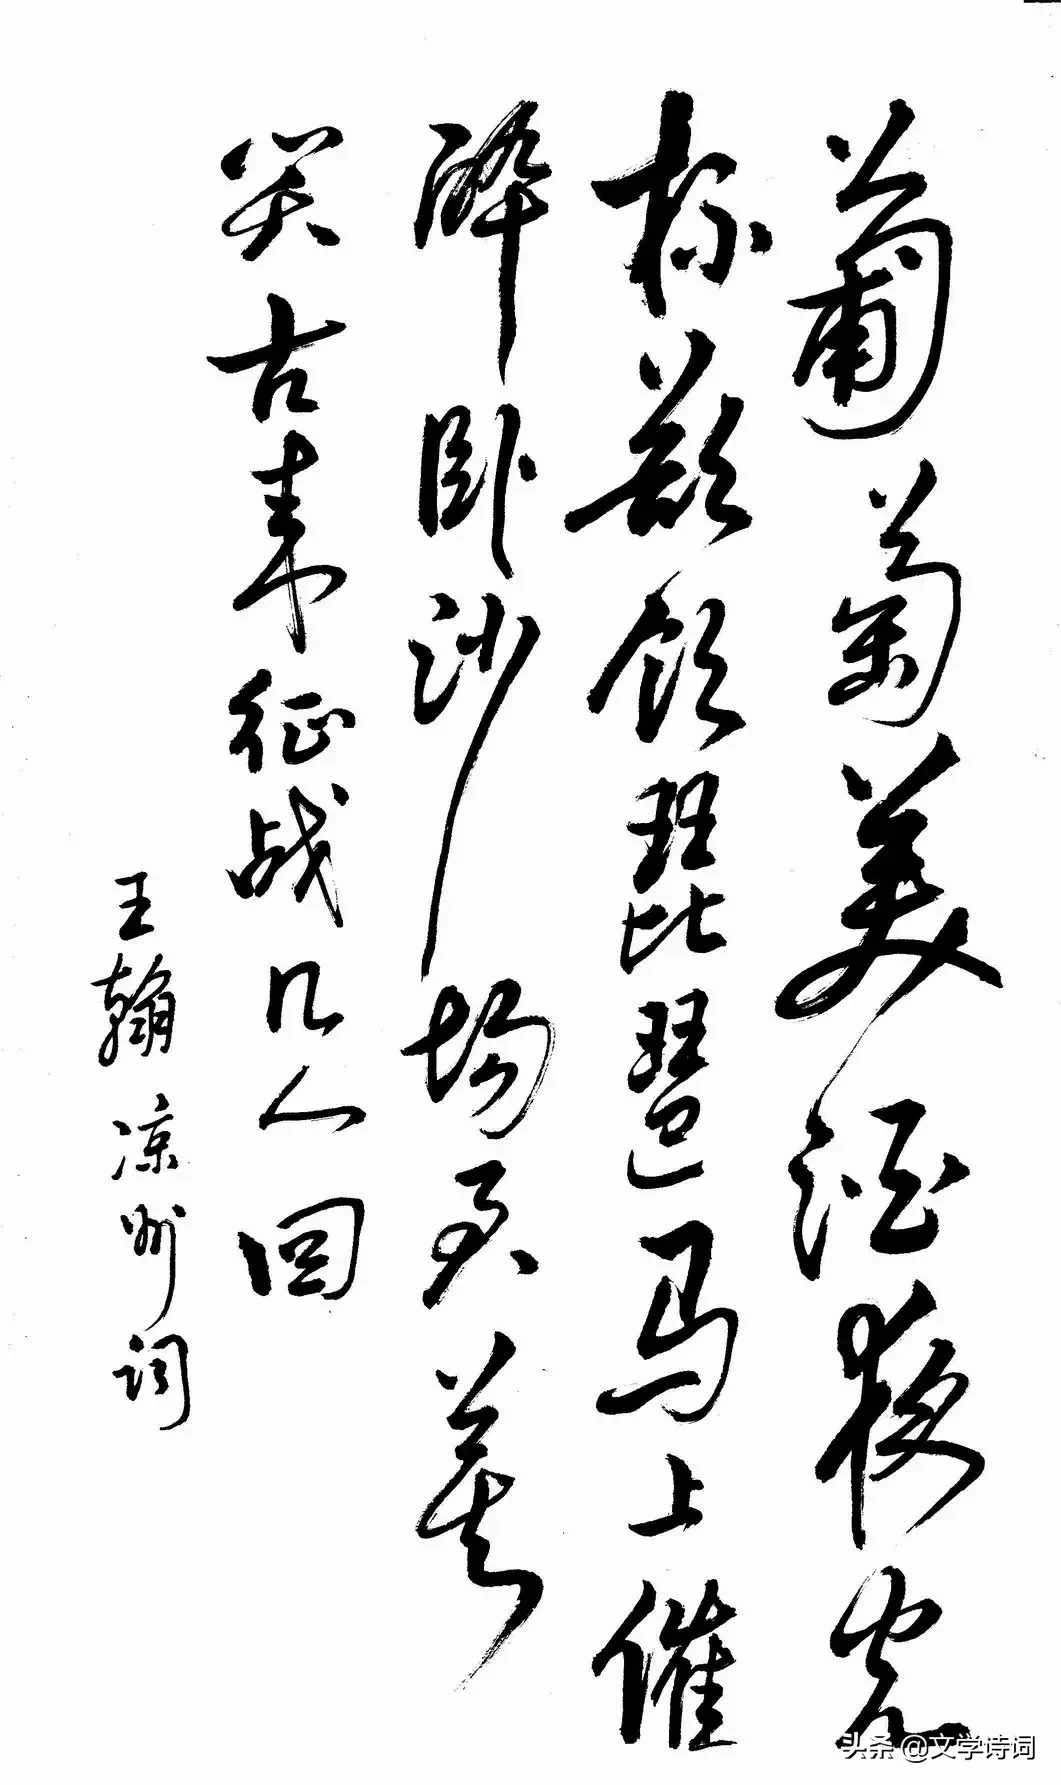 葡萄美酒夜光
杯欲饮琵琶马上催
醉卧沙场君莫
笑古来征战几人回
王翰凉州词
头条 @文学诗词